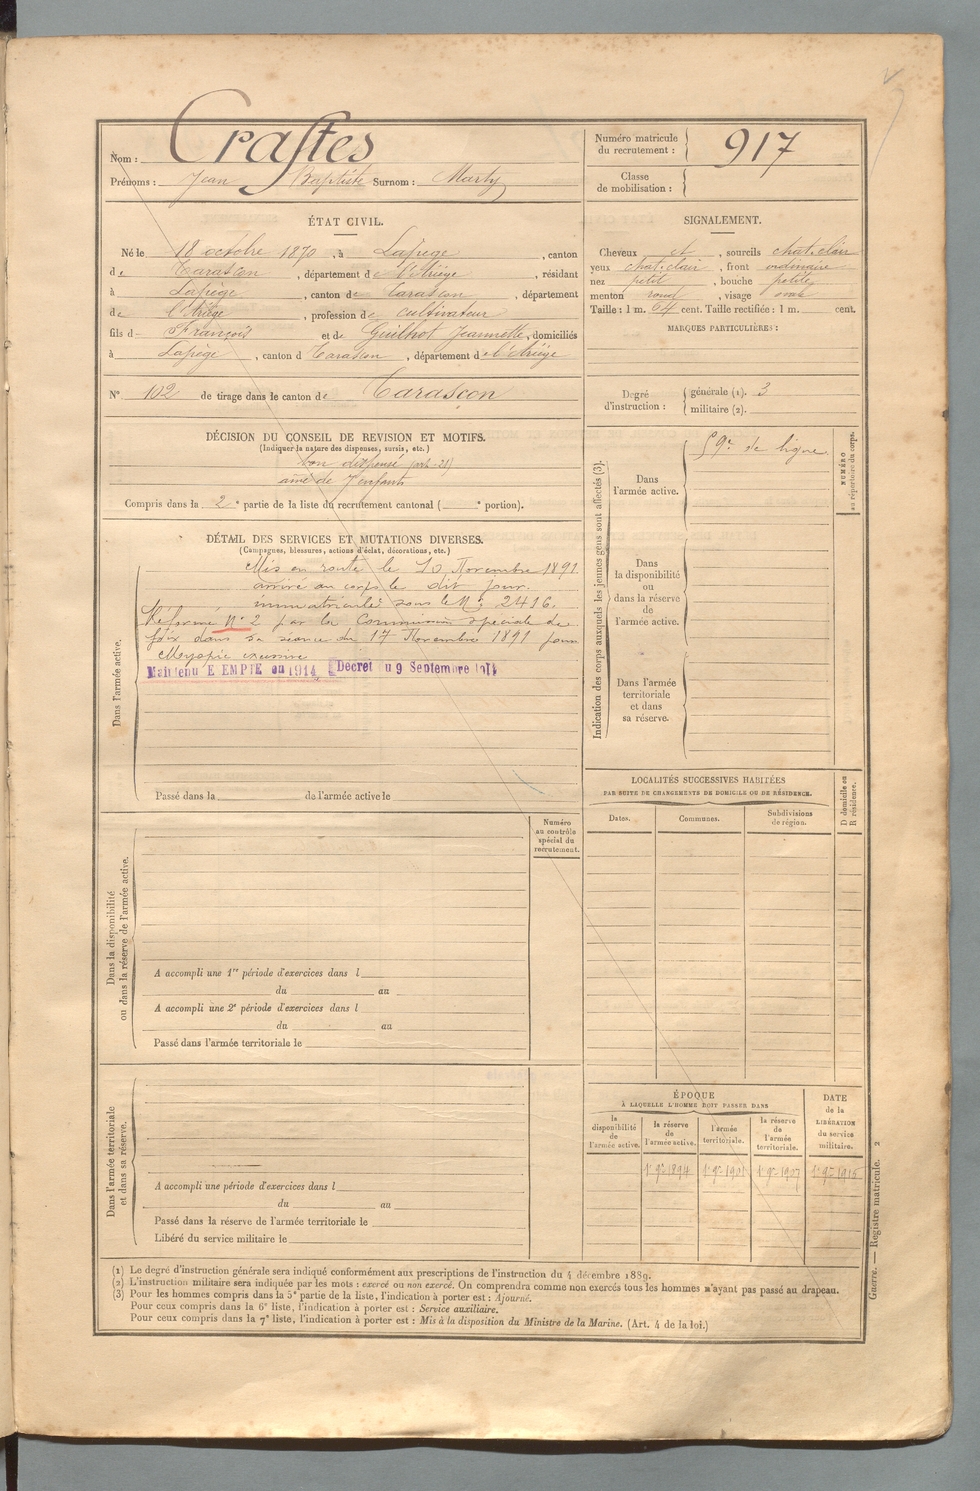 Nom : Crastes
Prénoms : Jean Baptiste Surnom : Marty
Numéro matricule du recrutement : 917
Classe de mobilisation :
ÉTAT CIVIL.
Né le 18 octobre 1870, à Lapège, canton
de Tarascon, département de l'Ariège, résidant
à Lapège, canton de Tarascon, département
de l'Ariège, profession de cultivateur
fils d- François et de Guilhot Jeannette, domiciliés
à Lapège, canton d Tarascon, département de l'Ariège
N° 102 de tirage dans le canton de Tarascon
SIGNALEMENT.
Cheveux et, sourcils chat. clair
yeux chat. clair, front ordinaire
nez petit, bouche petite
menton rond, visage
Taille : 1 m. 64 cent. Taille rectifiée : 1 m. cent.
MARQUES PARTICULIÈRES :
Degré d'instruction :
générale (1). 3
militaire (2).
DÉCISION DU CONSEIL DE REVISION ET MOTIFS.
(Indiquer la nature des dispenses, sursis, etc.)
bon dispensé (art. 21)
ainé de 7 enfants
Compris dans la 2e partie de la liste du recrutement cantonal ( e portion).
DÉTAIL DES SERVICES ET MUTATIONS DIVERSES.
(Campagnes, blessures, actions d'éclat, décorations, etc.)
Dans l'armée active.
Mis en route le 13 Novembre 1891
arrivé au corps le dit jour.
immatriculé sous le N° 2416.
Réformé N° 2 par la Commission spéciale de
foix dans sa séance du 17 Novembre 1891 pour
Myopie
Maintenu E EMPTE en 1914 Décret du 9 Septembre 1914
Passé dans la de l'armée active le
Indication des corps auxquels les jeunes gens sont affectés (3).
NUMÉRO au répertoire du corps.
Dans l'armée active.
59e de ligne
Dans la disponibilité ou dans la réserve de l'armée active.
Dans l'armée territoriale et dans sa réserve.
LOCALITÉS SUCCESSIVES HABITÉES
PAR SUITE DE CHANGEMENTS DE DOMICILE OU DE RÉSIDENCE.
Dates. Communes. Subdivisions de région. D domicile ou R résidence.
Numéro au contrôle spécial du recrutement.
Dans la disponibilité ou dans la réserve de l'armée active.
A accompli une 1re période d'exercices dans l
du au
A accompli une 2e période d'exercices dans l
du au
Passé dans l'armée territoriale le
Dans l'armée territoriale et dans sa réserve.
A accompli une période d'exercices dans l
du au
Passé dans la réserve de l'armée territoriale le
Libéré du service militaire le
ÉPOQUE
À LAQUELLE L'HOMME DOIT PASSER DANS
la disponibilité de l'armée active. la réserve de l'armée active. l'armée territoriale. la réserve de l'armée territoriale. DATE de la LIBÉRATION du service militaire.
1er 9bre 1894 1er 9bre 1901 1er 9bre 1907 1er 9bre 1916
(1) Le degré d'instruction générale sera indiqué conformément aux prescriptions de l'instruction du 4 décembre 1889.
(2) L'instruction militaire sera indiquée par les mots : exercé ou non exercé. On comprendra comme non exercés tous les hommes n'ayant pas passé au drapeau.
(3) Pour les hommes compris dans la 5e partie de la liste, l'indication à porter est : Ajourné.
Pour ceux compris dans la 6e liste, l'indication à porter est : Service auxiliaire.
Pour ceux compris dans la 7e liste, l'indication à porter est : Mis à la disposition du Ministre de la Marine. (Art. 4 de la loi.)
Guerre. — Registre matricule. 2